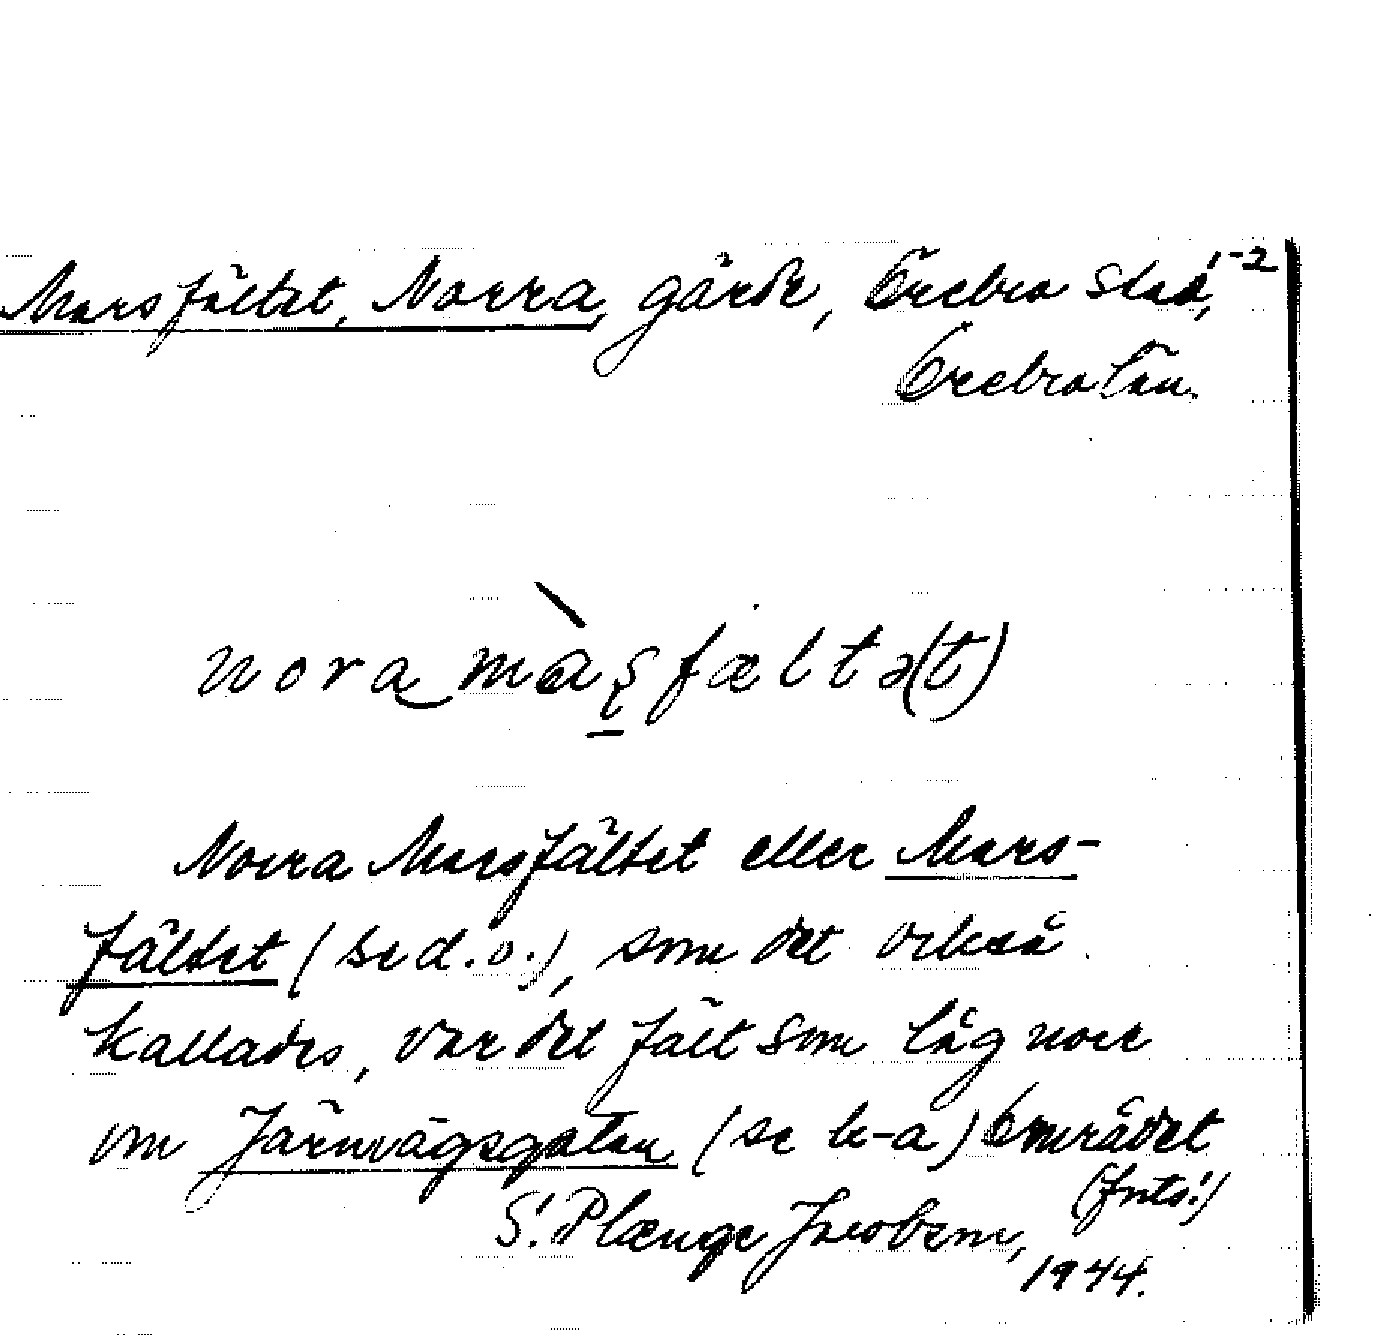 Marsfältet, Norra, gärde, Örebro stad, 1-2
Örebro län.
nora màʂfæltə(t)
Norra Marsfältet eller Mars-
fältet (se d. o.), som det också
kallades, var det fält som låg norr
om Järnvägsgatan (se k-a) området
(forts!)
S. Plænge Jacobson,
1944.